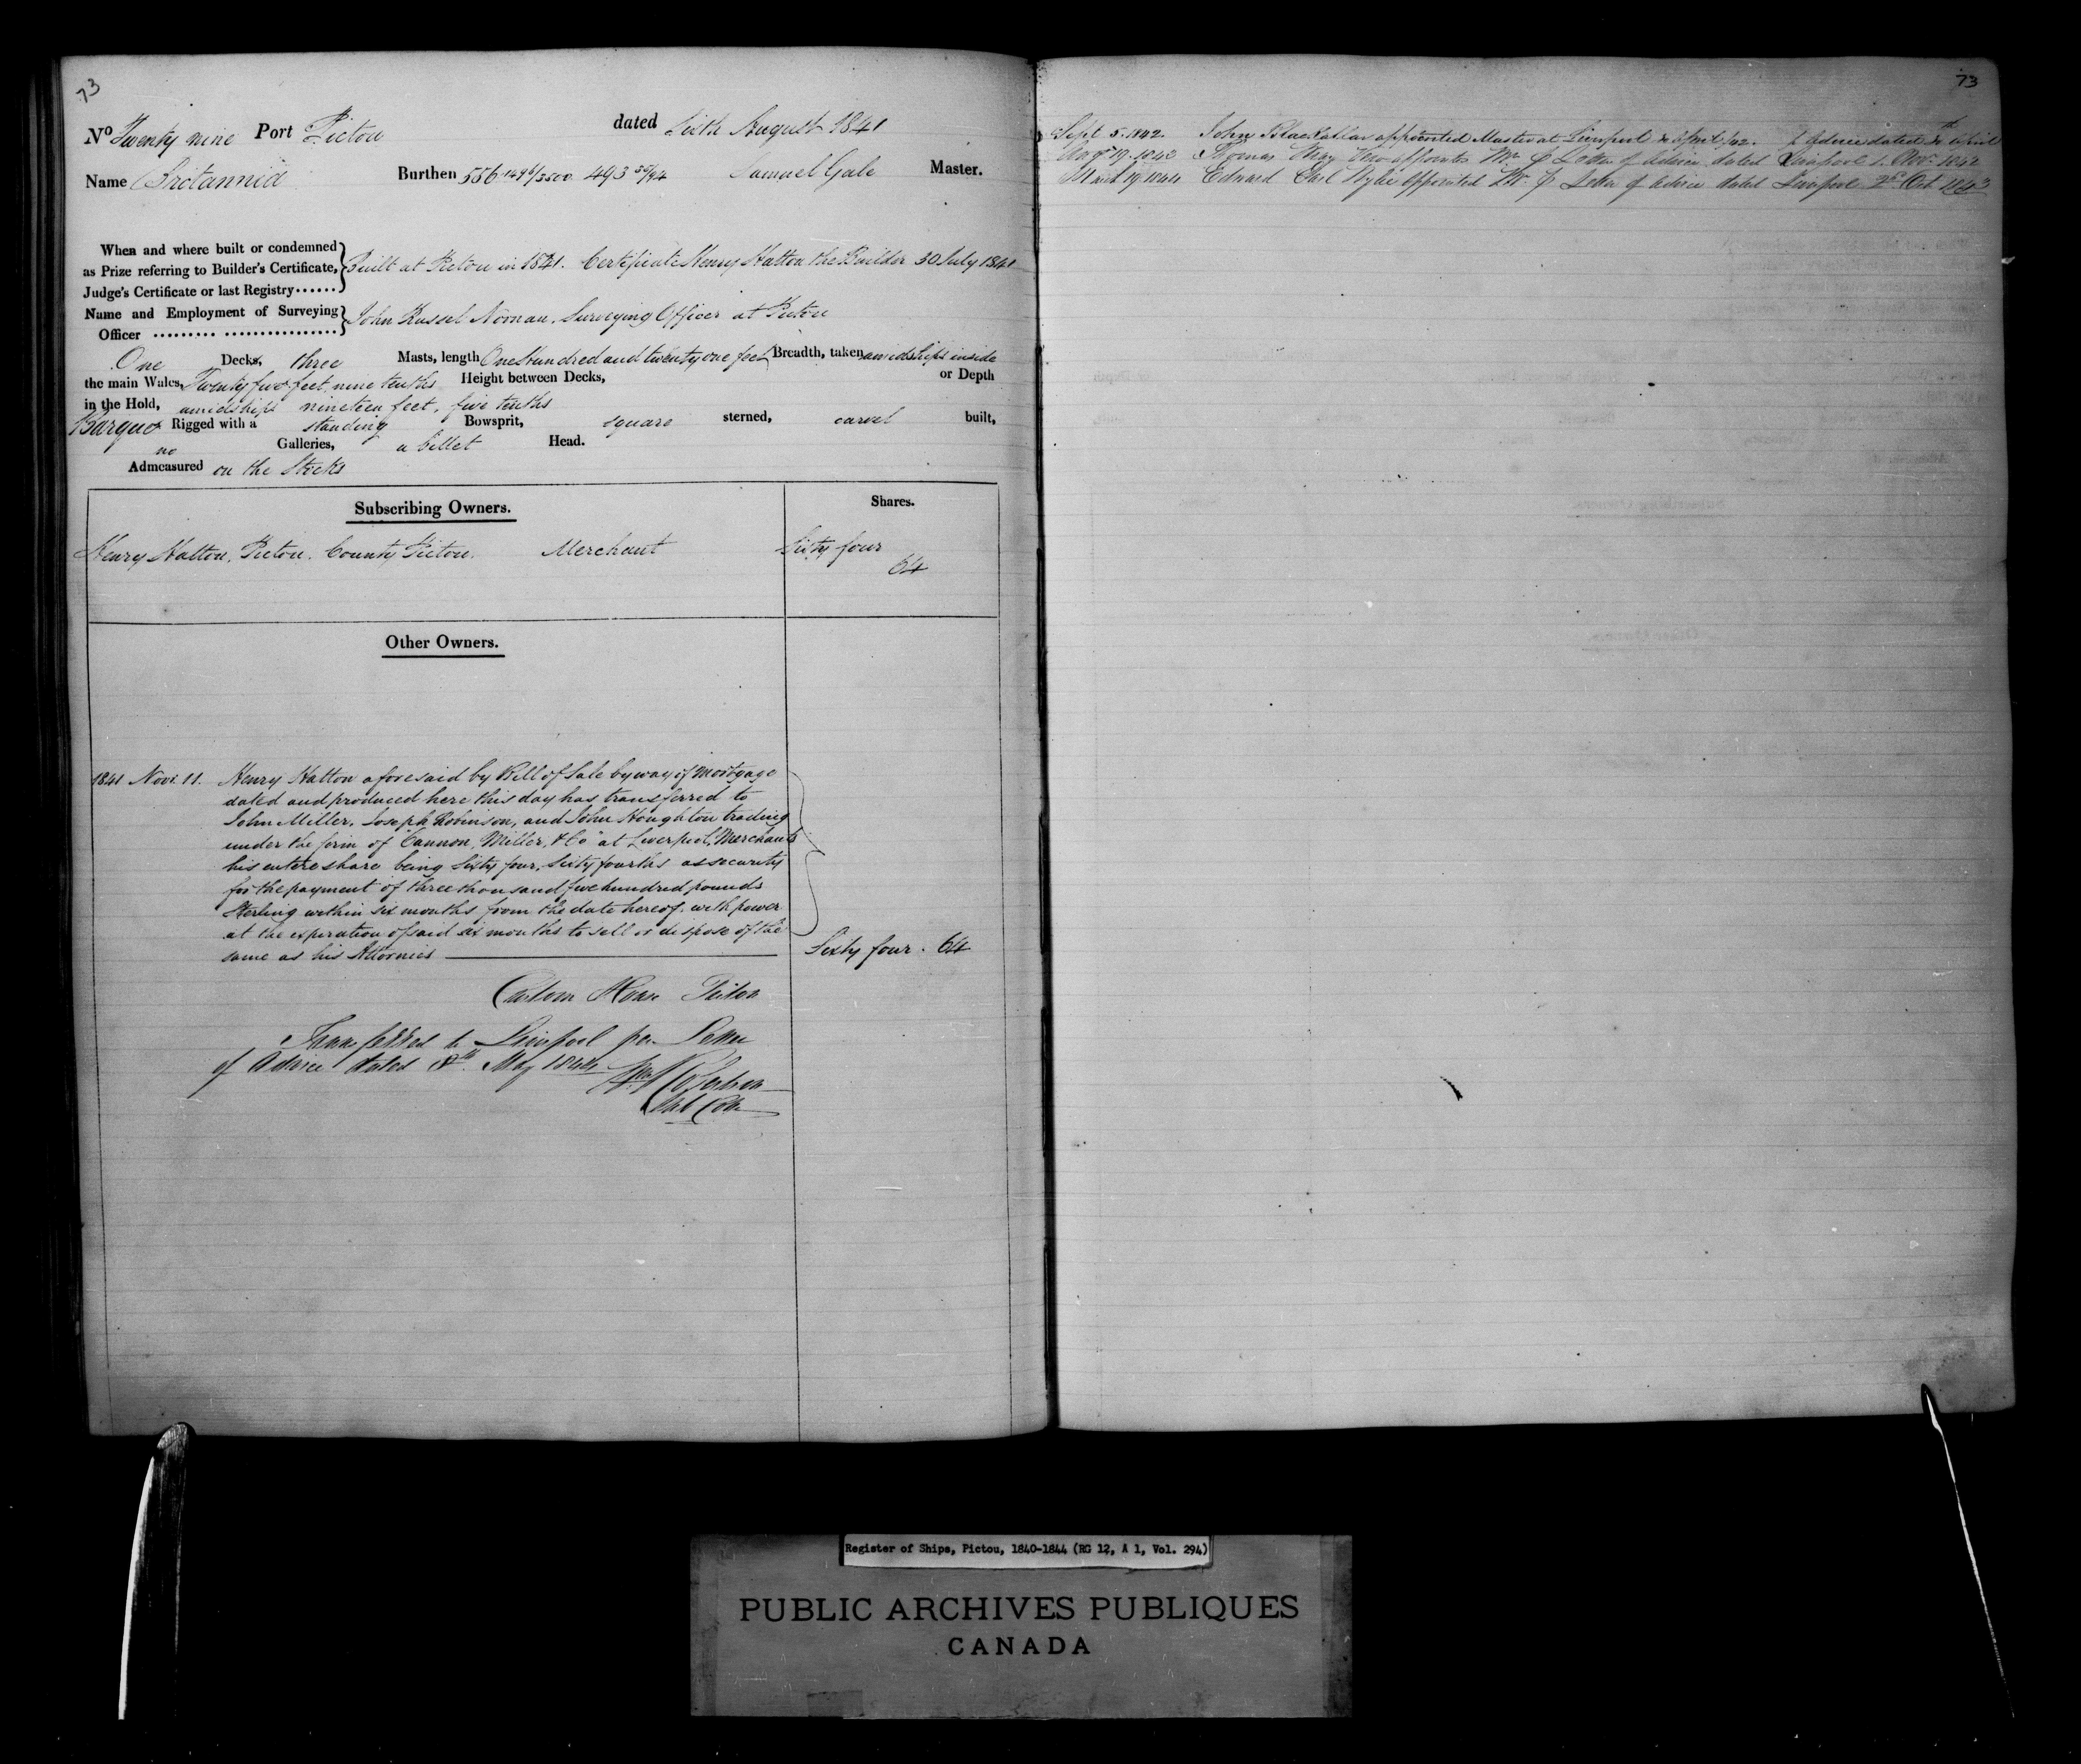 73
No Twenty nine Port Pictou dated Sixth August 1841
Name Britannia Burthen 556 1496/3500 493 55/94 Samuel Gale Master.
When and where built or condemned
as Prize referring to Builder's Certificate, Built at Pictou in 1841. Certificate Henry Hatton the Builder 30 July 1841
Judge's Certificate or last Registry
Name and Employment of Surveying John Russel Noonan, Surveying Officer at Pictou
Officer
One Decks, three Masts, length One Hundred and twenty one feet Breadth, taken amidships inside
the main Wales, Twenty five feet, nine tenths Height between Decks, or Depth
in the Hold, amidships nineteen feet, five tenths
Barque Rigged with a standing Bowsprit, square sterned, carvel built,
no Galleries, a billet Head.
Admeasured on the Stocks
Subscribing Owners. Shares.
Henry Hatton, Pictou. County Pictou. Merchant Sixty four
64
Other Owners.
1841 Novr. 11. Henry Hatton aforesaid by Bill of Sale by way of Mortgage
dated and produced here this day has transferred to
John Miller, Joseph Robinson, and John Houghton trading
under the firm of "Cannon, Miller, & Co" at Liverpool, Merchants
his entire share being Sixty four, Sixty fourths as security
for the payment of three thousand five hundred pounds
Sterling within six months from the date hereof, with power
at the expiration of said six months to sell or dispose of the
same as his Attornies Sixty four. 64
Custom House Pictou
Transferred to Liverpool per Letter
of Advice dated 8th. May 1844
Sub Coll
73
Sept 5. 1842. John appointed Master at Liverpool April /42. advice dated April
Augt 19. 1843 Thomas appointed Mr. p Letter of advice dated Liverpool 1. Nov. 1842
March 19 1844 Edward Earl Wylie appointed Mr. p Letter of advice dated Liverpool 2d Oct 1843
Register of Ships, Pictou, 1840-1844 (RG 12, A 1, Vol. 294)
PUBLIC ARCHIVES PUBLIQUES
CANADA